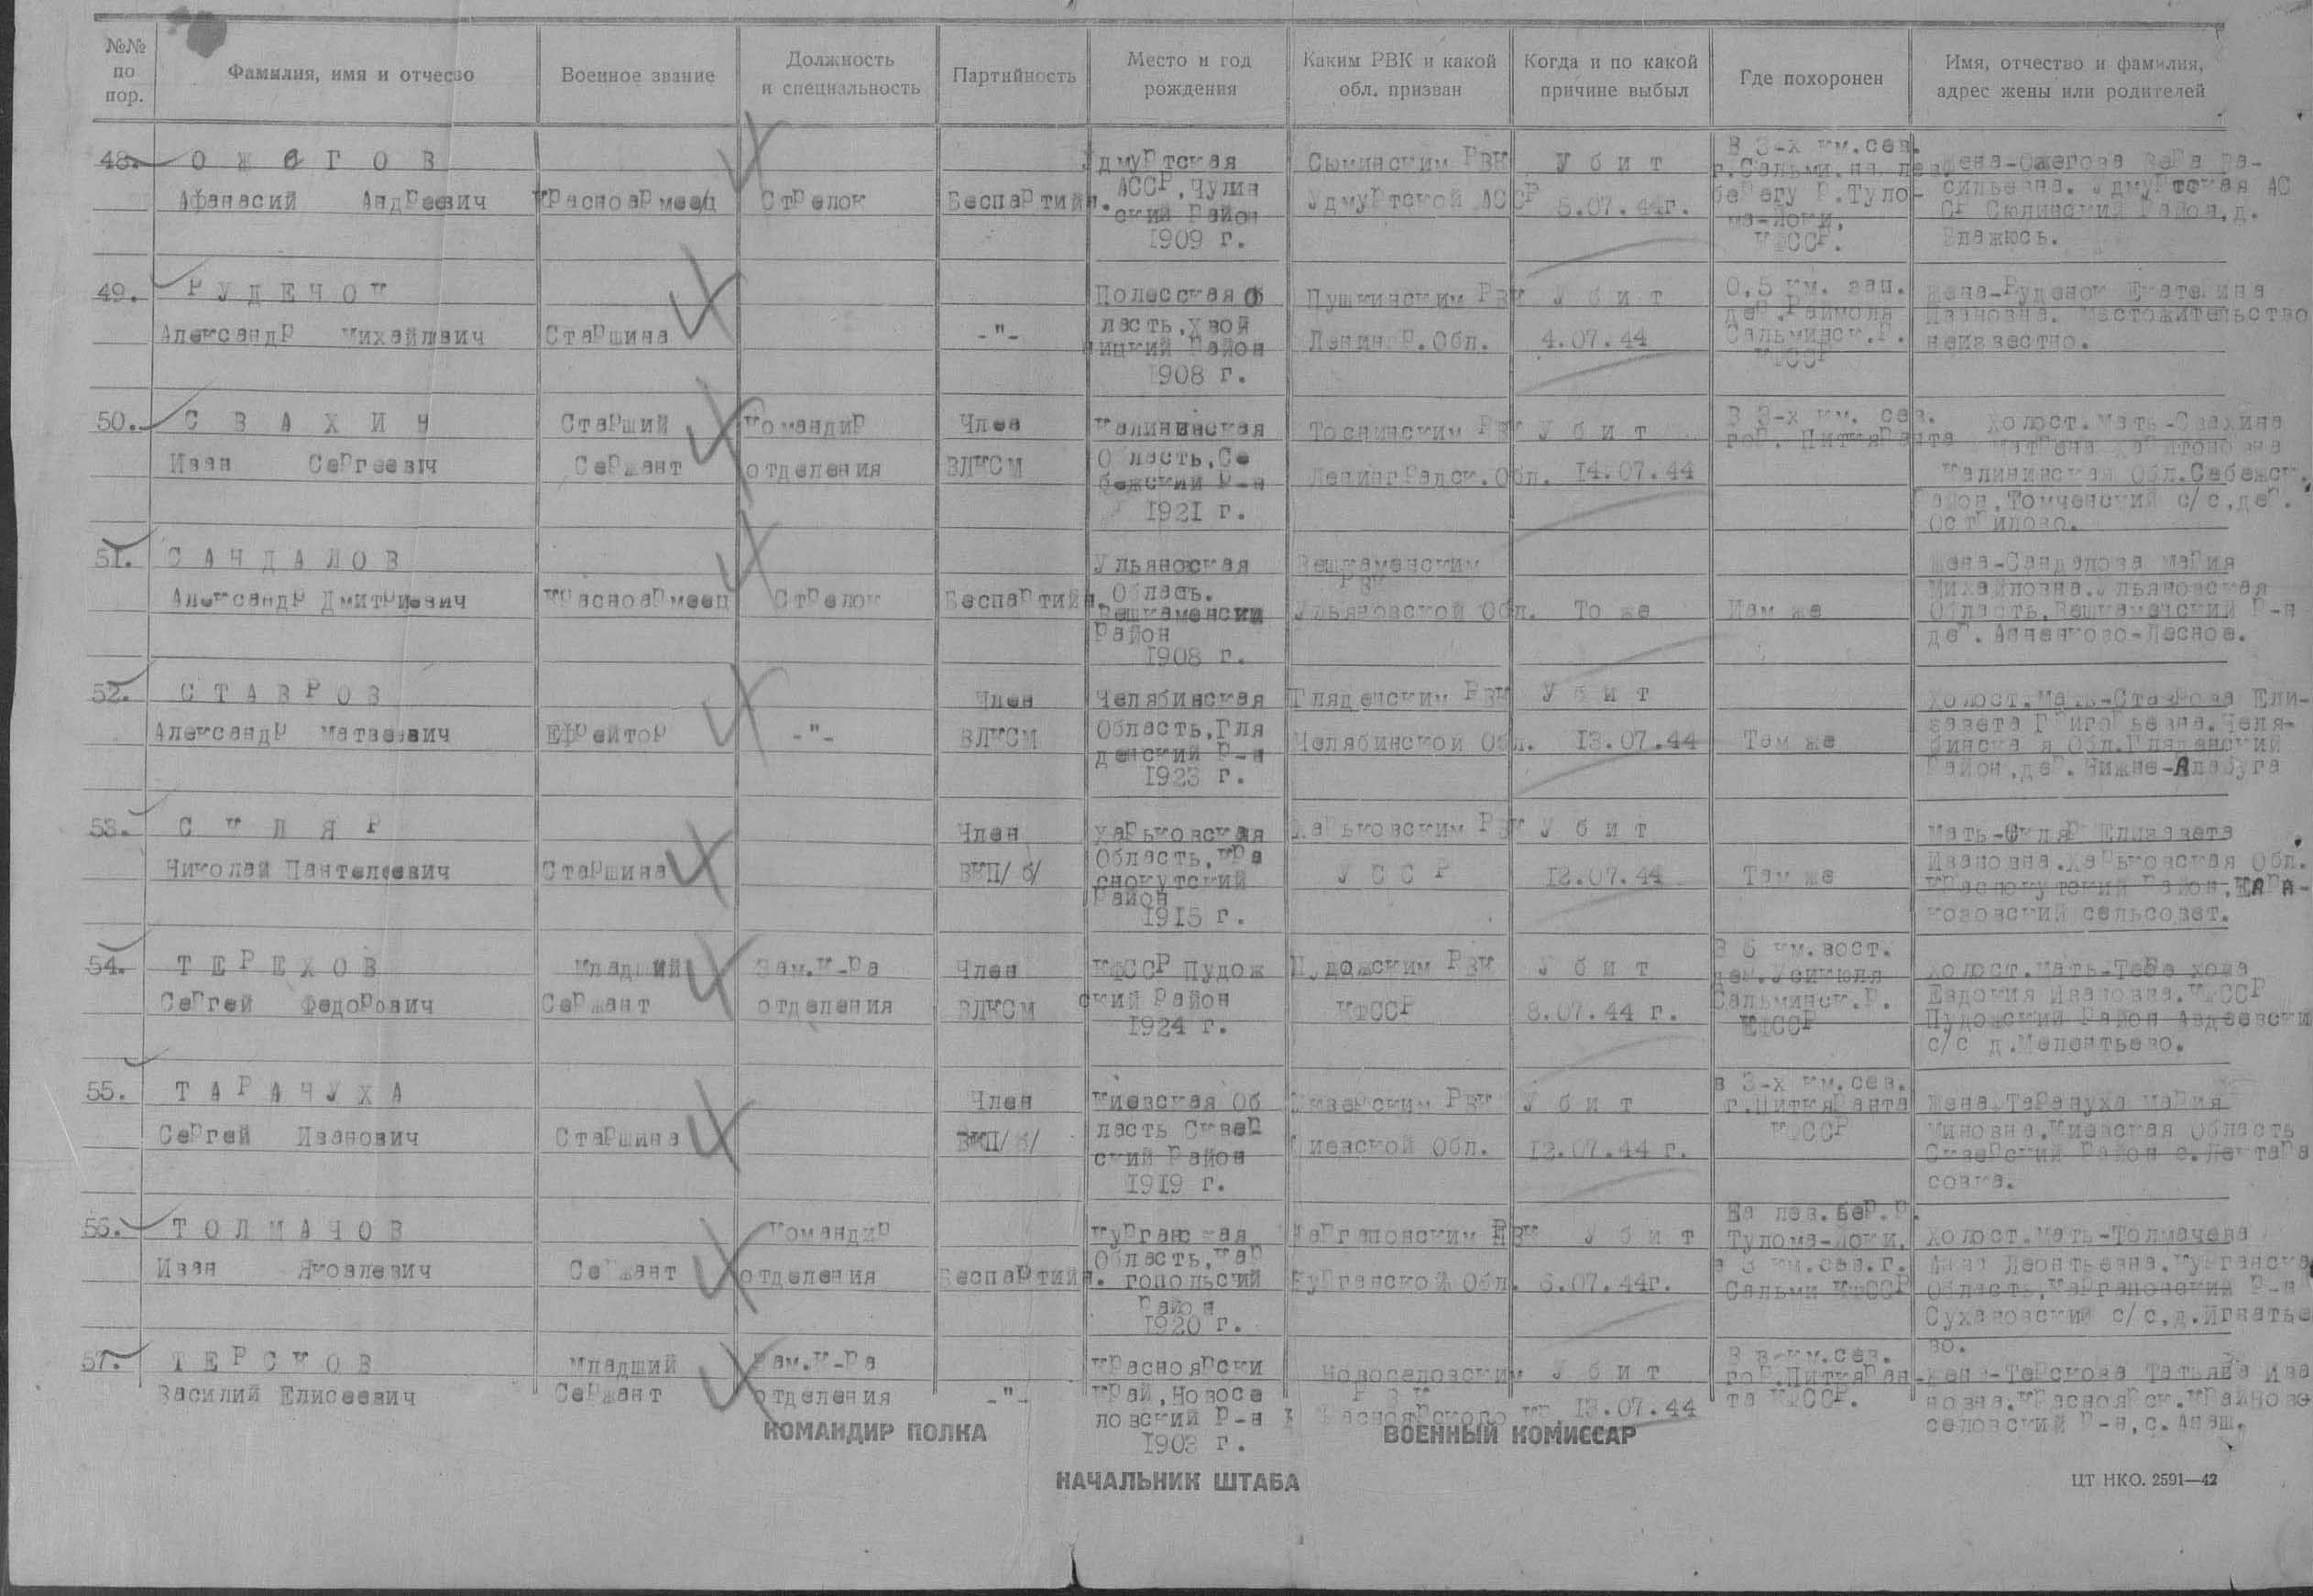 №№ по пор.
Фамилия, имя и отчесво
Военное звание
Должность и специальность
Партийность
Место и год рождения
Каким РВК и какой обл. призван
Когда и по какой причине выбыл
Где похоронен
Имя, отчество и фамилия, адрес жены или родителей
48. ОЖЕГОВ
Афанасий Андреевич
Красноармеец
Стрелок
Беспартийн.
Удмуртская
АССР, Чулин
ский Район
1909 г.
Сюминским РВК
Удмуртской АССР
Убит
5.07.44г.
В 3-х км. сев.
г. Сальми, на лев.
берегу р. Туло-
ма-Йоки,
КФССР.
Жена-Ожегова Вера Ва-
сильевна. Удмуртская АС
СР Сюлинский Район, д.
49. РУДЕНОК
Александр Михайлович
Старшина
-"-
Полесская Об
ласть, Хвой
ницкий Район
1908 г.
Пушкинским РВК
Ленингр. Обл.
Убит
4.07.44
0,5 км. зап.
дер. Раймоля
Сальминск. Р.
КФССР
Жена-Руденок Екатерина
Ивановна. Местожительство
неизвестно.
50. СВАХИН
Иван Сергеевич
Старший
Сержант
Командир
отделения
Член
ВЛКСМ
Калининская
Область, Се
бежский Р-н
1921 г.
Тоснинским РВК
Ленинградск. Обл.
Убит
14.07.44
В 3-х км. сев.
гор. Питкяранта
Холост. Мать-Свахина
Матрена Харитоновна
Калининская Обл. Себежск.
Район, Томченский с/с, дер.
51. САНДАЛОВ
Александр Дмитриевич
Красноармеец
Стрелок
Беспартийн.
Ульяновская
Область.
Вешкаменский
Район
1908 г.
Вешкаменским
РВК
Ульяновской Обл.
То же
Там же
Жена-Сандалова Мария
Михайловна. Ульяновская
Область, Вешкаменский Р-н
дер. Анненково-Лесное.
52. СТАВРОВ
Александр Матвеевич
Ефрейтор
-"-
Член
ВЛКСМ
Челябинская
Область, Гля
денский Р-н
1923 г.
Гляденским РВК
Челябинской Обл.
Убит
13.07.44
Там же
Холост. Мать-Ставрова Ели-
завета Григорьевна. Челя-
бинская Обл. Гляденский
Район, дер. Нижне-Алабуга
53. СКЛЯР
Николай Пантелеевич
Старшина
Член
ВКП/б/
Харьковская
Область, Кра
снокутский
Район
1915 г.
Харьковским РВК
УССР
Убит
12.07.44
Там же
Мать-Скляр Елизавета
Ивановна. Харьковская Обл.
Краснокутский Район, Кара-
ковский сельсовет.
54. ТЕРЕХОВ
Сергей Федорович
Младший
Сержант
Зам. К-ра
отделения
Член
ВЛКСМ
КФССР Пудож
ский Район
1924 г.
Пудожским РВК
КФССР
Убит
8.07.44 г.
В 6 км. вост.
дем. Усикюля
Сальминск. Р.
КФССР
Холост. Мать-Терехова
Евдокия Ивановна. КФССР
Пудожский Район Авдеевский
с/с д. Мелентьево.
55. ТАРАНУХА
Сергей Иванович
Старшина
Член
ВКП/б/
Киевская Об
ласть Сквер
ский Район
1919 г.
Сквирским РВК
Киевской Обл.
Убит
12.07.44 г.
в 3-х км. сев.
г. Питкяранта
КФССР
Жена Тарануха Мария
Миновна. Киевская Область
Скверский Район
56. ТОЛМАЧОВ
Иван Яковлевич
Сержант
Командир
отделения
Беспартийн.
Курганская
Область, Кар
гопольсий
Район
1920 г.
Каргапонским РВК
Курганской Обл.
Убит
6.07.44г.
На лев. бер. р.
Тулома-Йоки,
в 3 км. сев. г.
Сальми КФССР
Холост. Мать-Толмачева
Анна Леонтьевна. Курганска
Область, Каргапонский Р-н
Сухановский с/с, д. Игнатье
во.
57. ТЕРСКОВ
Василий Елисеевич
Младший
Сержант
Зам. К-ра
отделения
-"-
Красноярски
Край, Новосе
ловский Р-н
1903 г.
Новоселовским
РВК
Красноярского кр.
Убит
13.07.44
В 3-км. сев.
гор. Питкяран-
та КФССР.
Жена-Терскова Татьяна Ива
новна. Красноярск. Край Ново
селовский Р-н, с. Анаш.
КОМАНДИР ПОЛКА
ВОЕННЫЙ КОМИССАР
НАЧАЛЬНИК ШТАБА
ЦТ НКО. 2591—42